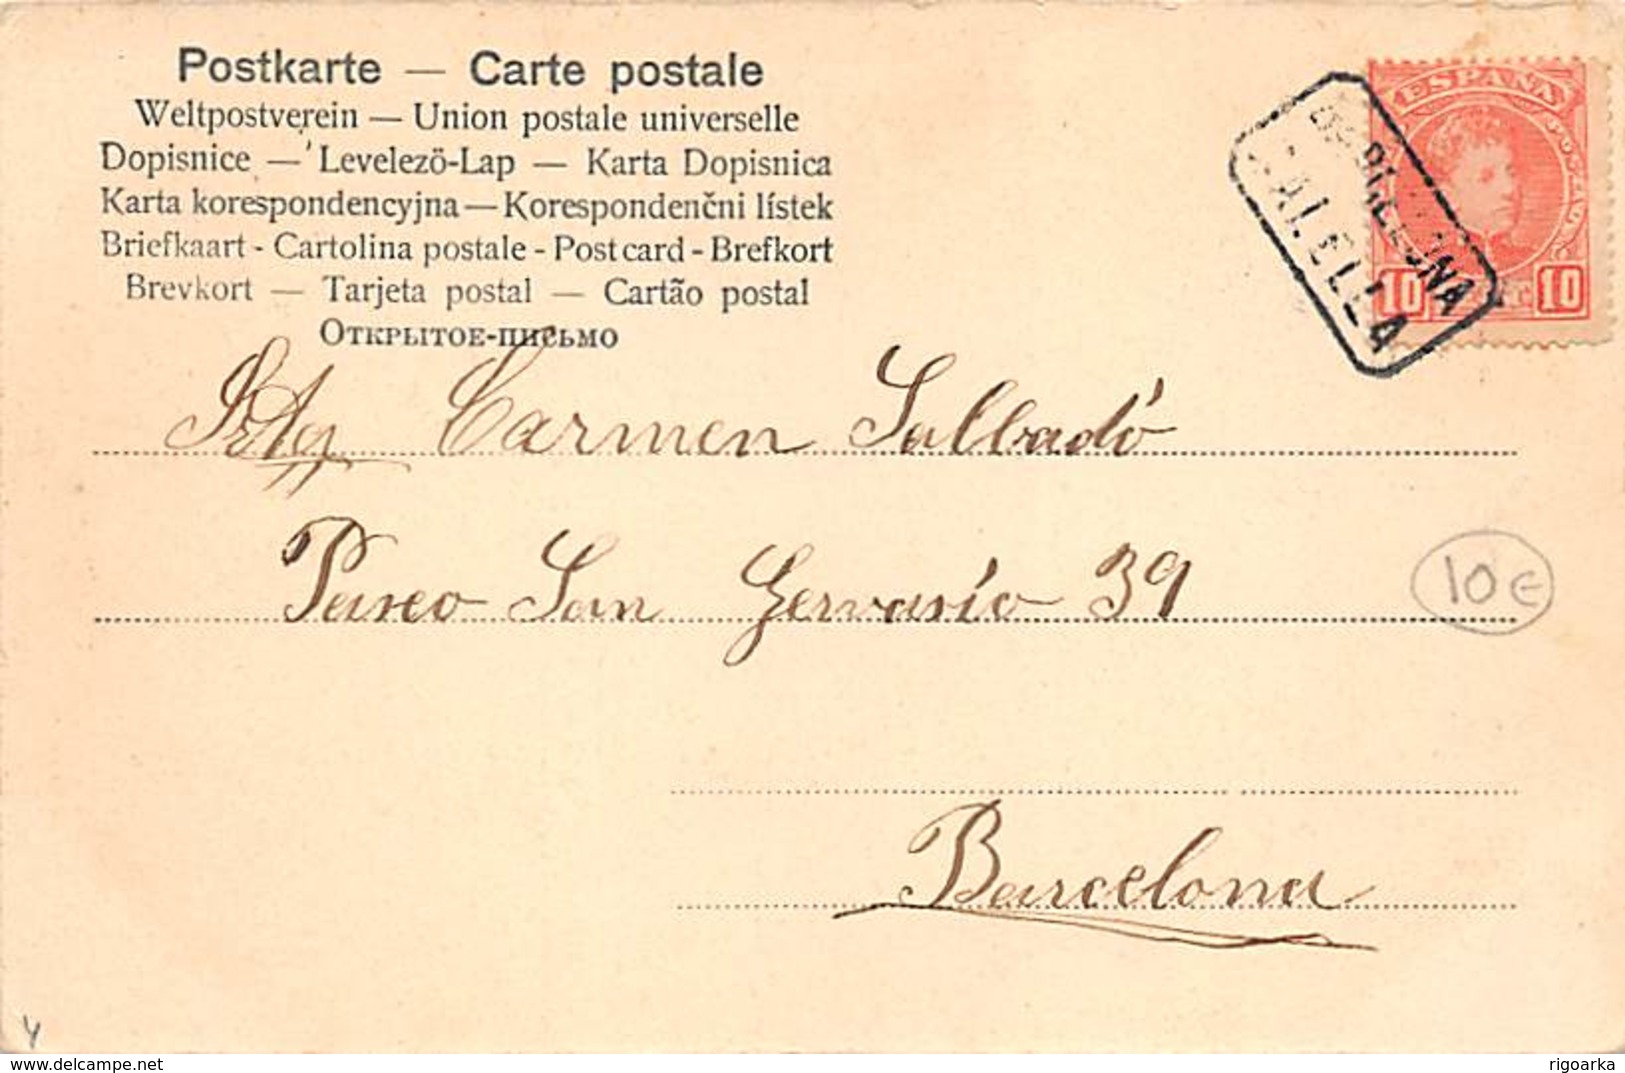 Postkarte — Carte postale
Weltpostverein — Union postale universelle
Dopisnice — Levelezö-Lap — Karta Dopisnica
Karta korespondencyjna — Korespondenčni lístek
Briefkaart - Cartolina postale - Post card - Brefkort
Brevkort — Tarjeta postal — Cartão postal
Открытое-письмо
ESPAÑA
10 10
BARCELONA
CALELLA
Srta Carmen Salbadó
Paseo San Gervasio 39
10 €
Barcelona
4
www.delcampe.net
rigoarka